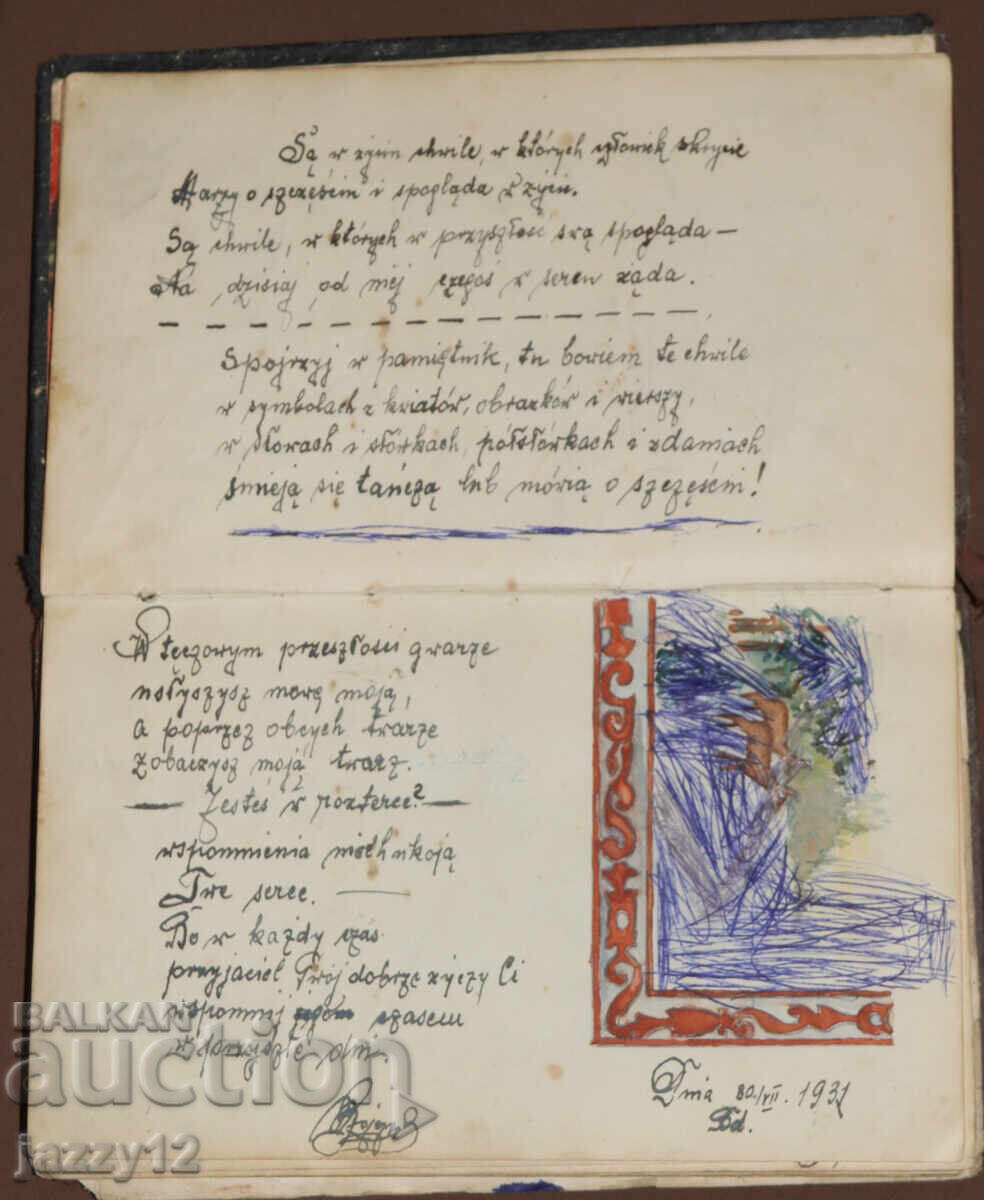 Są w życiu chwile, w których człowiek skrycie
Marzy o szczęściu i spogląda w życie.
Są chwile, w których w przyszłość swą spogląda —
Na dzisiaj od niej czegoś w sercu żąda.
Spojrzyj w pamiętnik, tu bowiem te chwile
w symbolach z kwiatów, obrazków i wierszy,
w słowach i słówkach, półsłówkach i zdaniach
śmieją się tańczą lub mówią o szczęściu!
W tęczowym przeszłości gwarze
usłyszysz mowę moją,
a poprzez obcych twarze
zobaczysz moją twarz.
— Jesteś w rozterce? —
wspomnienia niech ukoją
Twe serce. —
Bo w każdy czas
przyjaciel Twój dobrze życzy Ci
wspomnij czasem
w przyszłe dni.
Dnia 30/VII. 1931
Bd.
BALKAN
auction
jazzy12